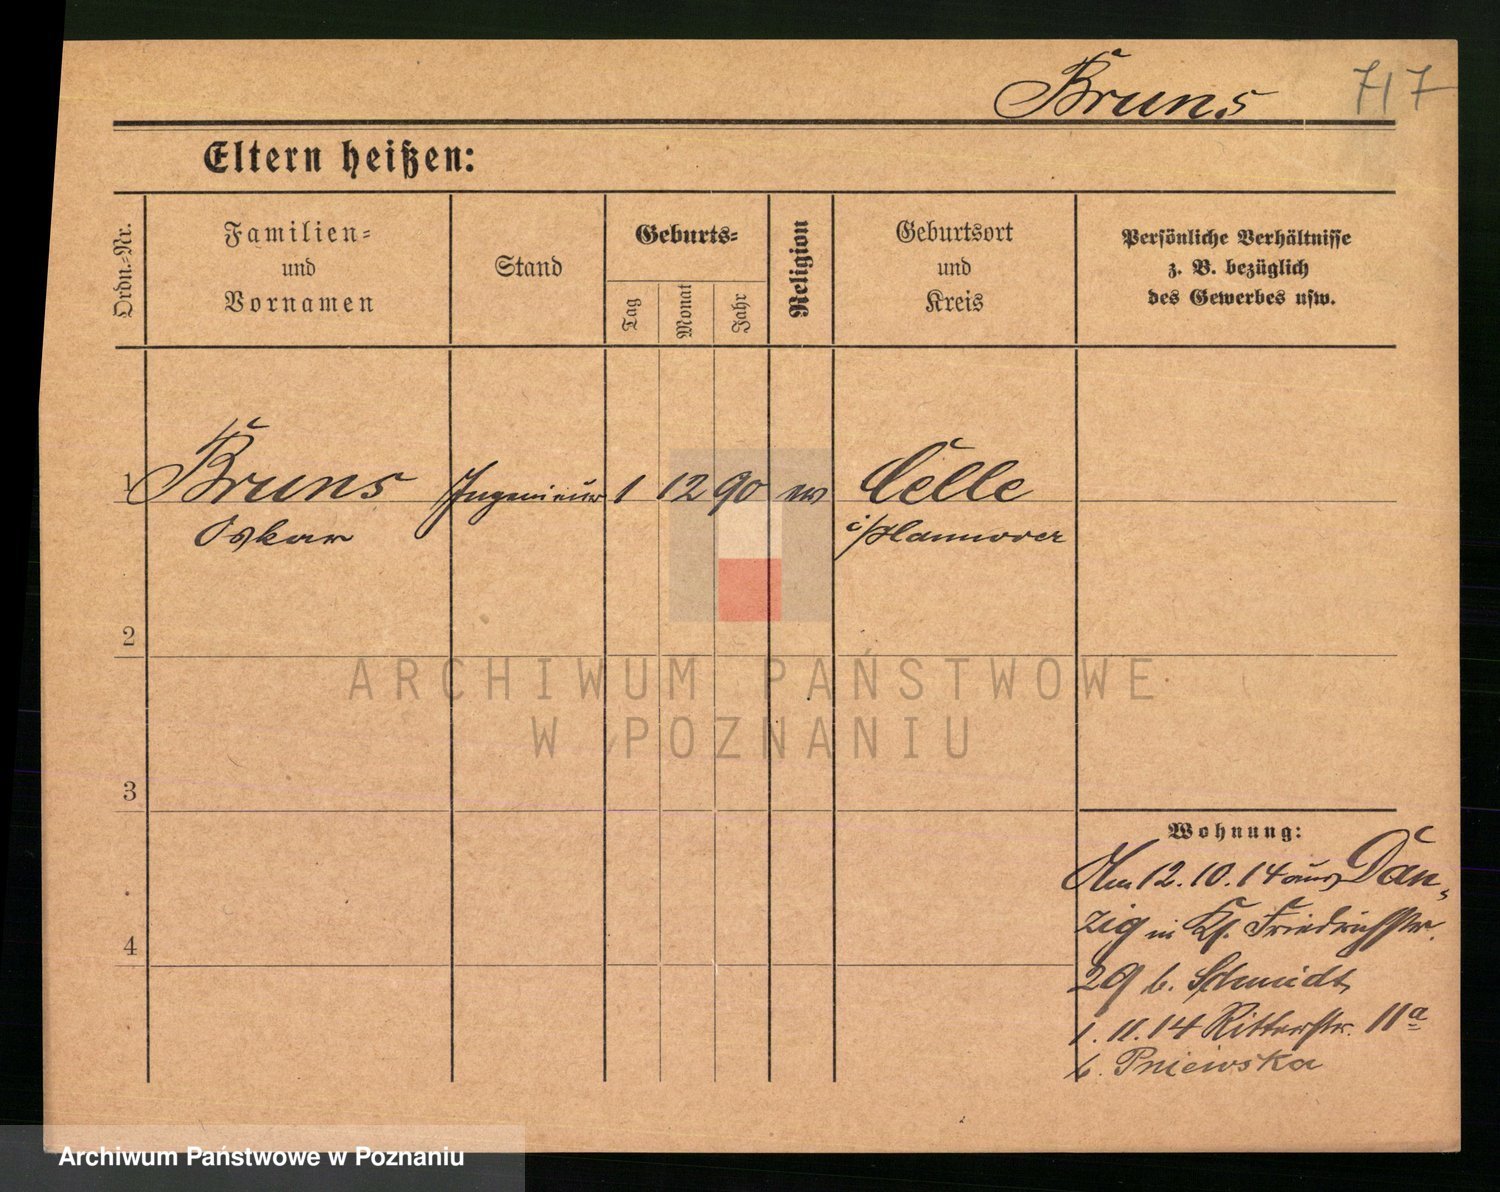 Bruns
717
Eltern heißen:
Ordn.-Nr.
Familien-
und
Vornamen
Stand
Geburts-
Tag
Monat
Jahr
Religion
Geburtsort
und
Kreis
Persönliche Verhältnisse
z. B. bezüglich
des Gewerbes usw.
1 Bruns Ingenieur 1 12 90 Celle
Oskar i/Hannover
2
ARCHIWUM PAŃSTWOWE
W POZNANIU
3
Wohnung:
12.10.14 aus Dan-
4
zig in Friedrichstr.
29 b. Schmidt
1.11.14 Ritterstr. 11a
b. Pniewska
Archiwum Państwowe w Poznaniu